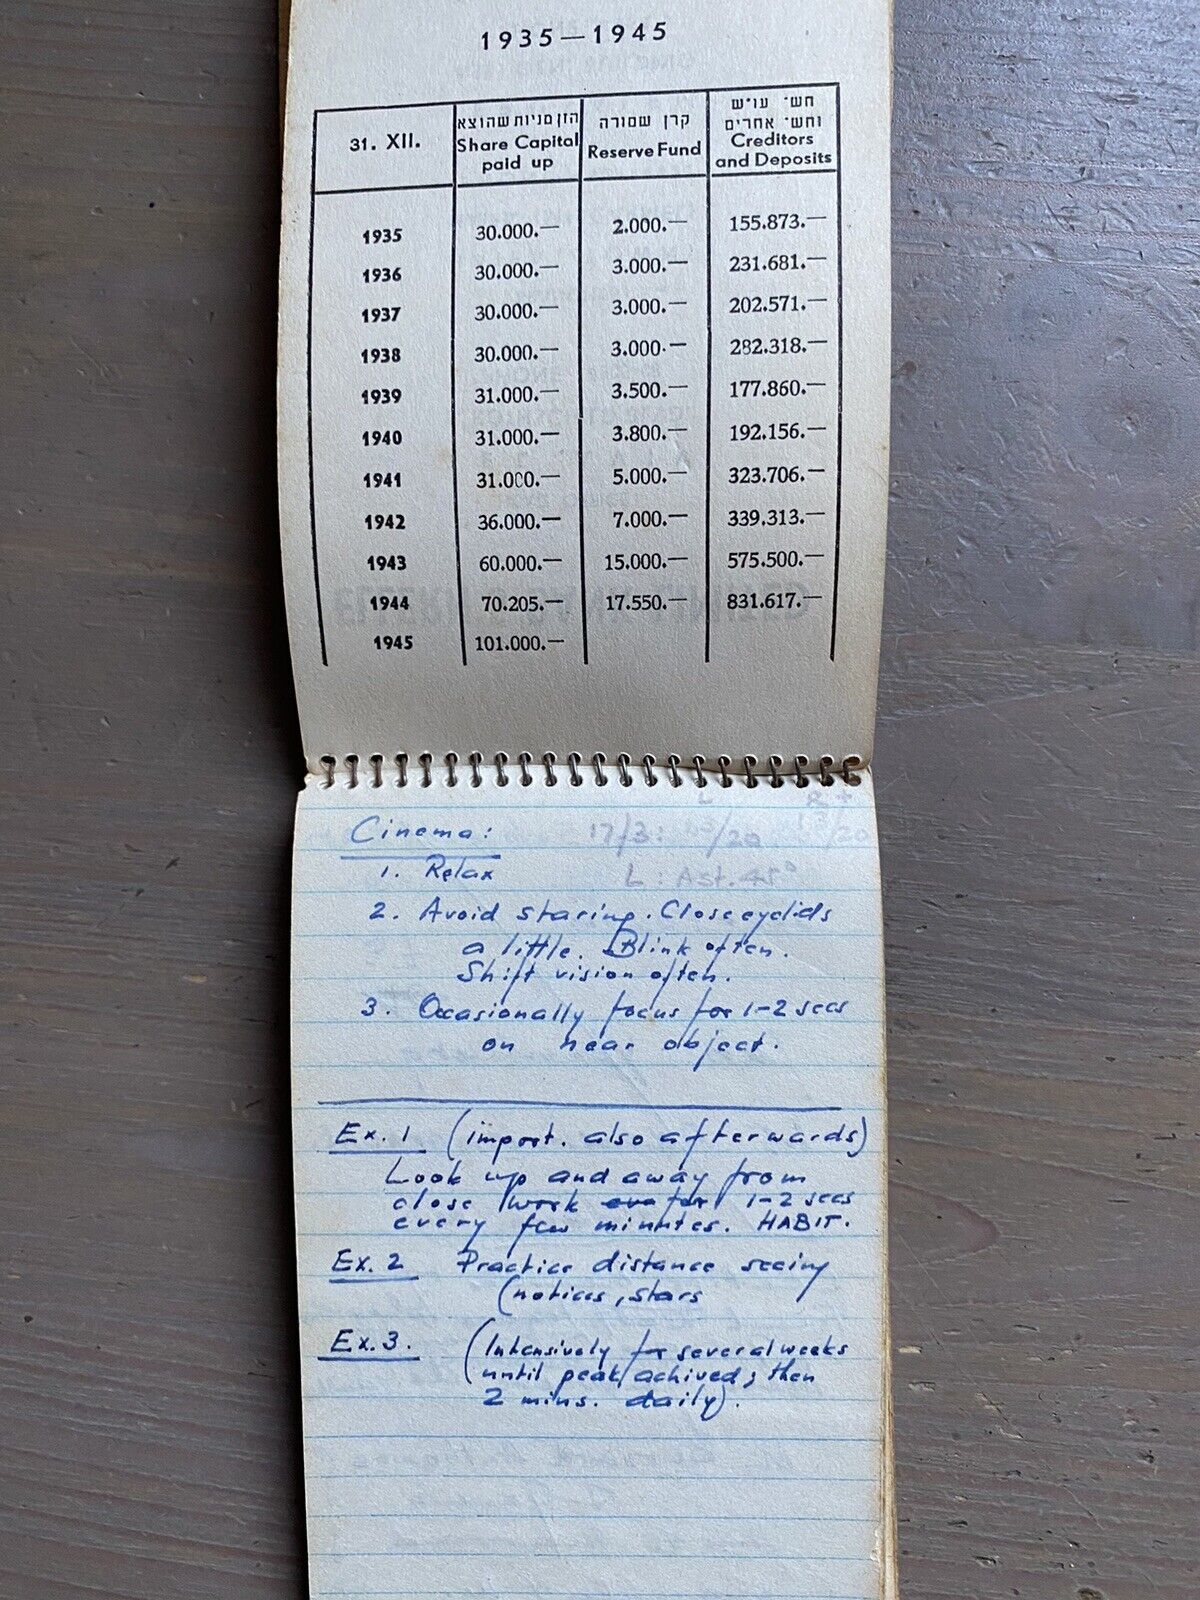 1935—1945
31. XII.
הון מניות שהוצא
Share Capital
paid up
קרן שמורה
Reserve Fund
חש׳ עו״ש
וחש׳ אחרים
Creditors
and Deposits
1935 30.000.— 2.000.— 155.873.—
1936 30.000.— 3.000.— 231.681.—
1937 30.000.— 3.000.— 202.571.—
1938 30.000.— 3.000.— 282.318.—
1939 31.000.— 3.500.— 177.860.—
1940 31.000.— 3.800.— 192.156.—
1941 31.000.— 5.000.— 323.706.—
1942 36.000.— 7.000.— 339.313.—
1943 60.000.— 15.000.— 575.500.—
1944 70.205.— 17.550.— 831.617.—
1945 101.000.—
L R +
Cinema: 17/3: /20 /20
1. Relax L: Ast. 45°
2. Avoid staring. Close eyelids
a little. Blink often.
Shift vision often.
3. Occasionally focus for 1-2 secs
on near object.
Ex. 1 (import. also afterwards)
Look up and away from
close work for 1-2 secs
every few minutes. HABIT.
Ex. 2 Practice distance seeing
(notices, stars
Ex. 3. (Intensively for several weeks
until peak achived; then
2 mins. daily).